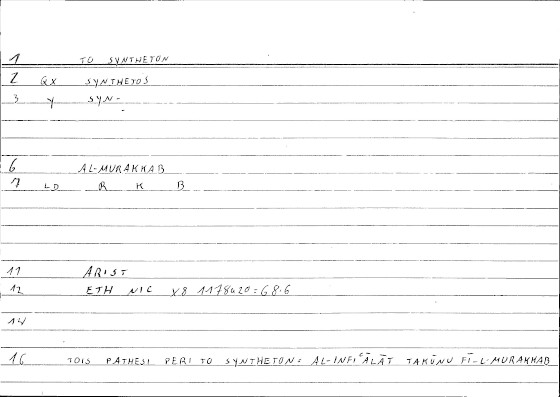 1 TO SYNTHETON
2 QX SYNTHETOS
3 Y SYN-
6 AL-MURAKKAB
7 LD R K B
11 ARIST
12 ETH NIC X8 1178a20=68.6
14
16 TOIS PATHESI PERI TO SYNTHETON= AL-INFIʿĀLĀT TAKŪNU FĪ-L-MURAKKAB